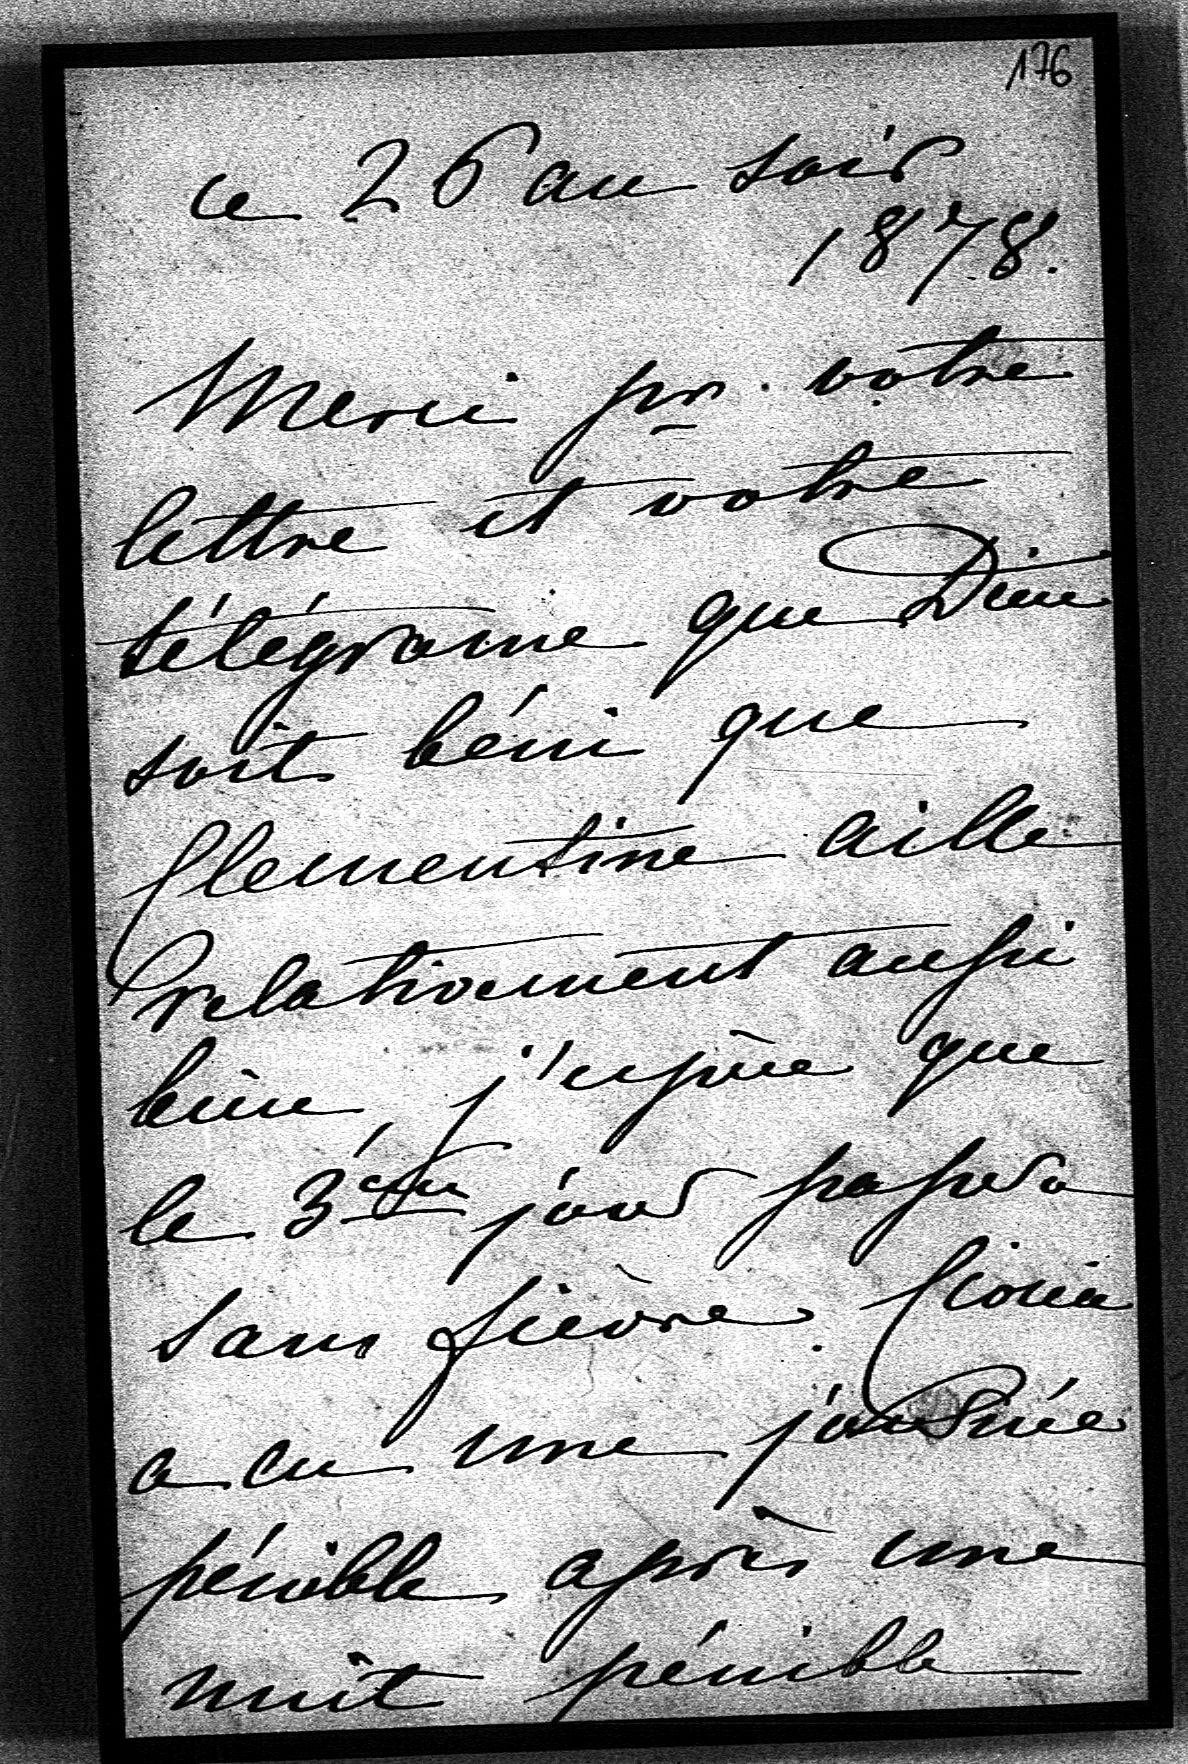 176
ce 26 au soir
1878.
Merci pr. votre
lettre et votre
télégrame que Dieu
soit béni que
Clementine aille
relativement aussi
bien, j'espère que
le 3ème jour passera
sans fièvre. Cioria
a eu une journée
pénible après une
nuit pénible